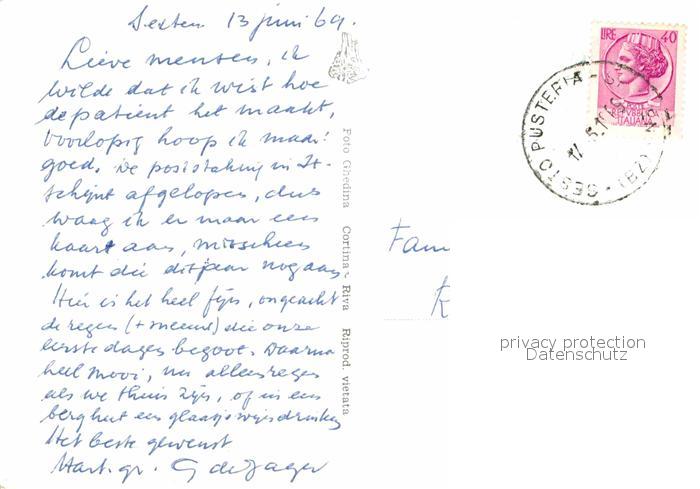 Sexten 13 juni 69.
Lieve mensen, ik
wilde dat ik wist hoe
de patient het maakt,
voorlopig hoop ik maar:
goed. De poststaking in It.
schijnt afgelopen, dus
waag ik er maar een
kaart aan, misschien
komt die dit jaar nog aan.
Hier is het heel fijn, ongeacht
de regen (+ sneeuw) die onze
eerste dagen begoot. Daarna
heel mooi, nu alleen regen
als we thuis zijn, of in een
berghut een glaasje wijn drinken
Het beste gewenst
Hart. gr. G de Jager
Foto Ghedina Cortina - Riva Riprod. vietata
LIRE 40
POSTE
REPUBBLICA
ITALIANA
SESTO PUSTERIA (BZ)
Fam
privacy protection
Datenschutz